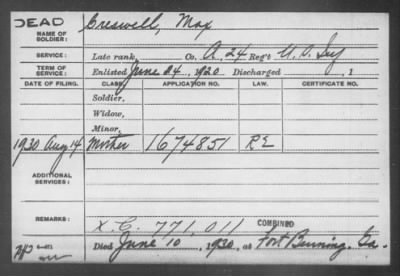 DEAD
NAME OF SOLDIER: Creswell, Max
SERVICE: Late rank, Co. A, 24 Reg't U.S. Inf
TERM OF SERVICE: Enlisted June 24, 1920 Discharged , 1
DATE OF FILING. CLASS. APPLICATION NO. LAW. CERTIFICATE NO.
Soldier,
Widow,
Minor,
1930 Aug 14 Mother 1674851 RE
ADDITIONAL SERVICES:
REMARKS: X.C. 771,011 COMBINED
Died June 10, 1930, at Fort Benning, Ga.